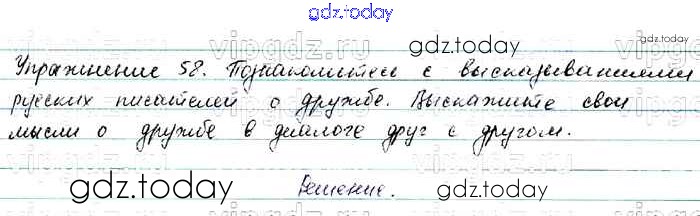 gdz.today
gdz.today
vipgdz.ru
gdz.today
Упражнение 58. Познакомитесь с высказываниями
русских писателей о дружбе. Выскажите свои
мысли о дружбе в диалоге друг с другом.
gdz.today
gdz.today
Решение.